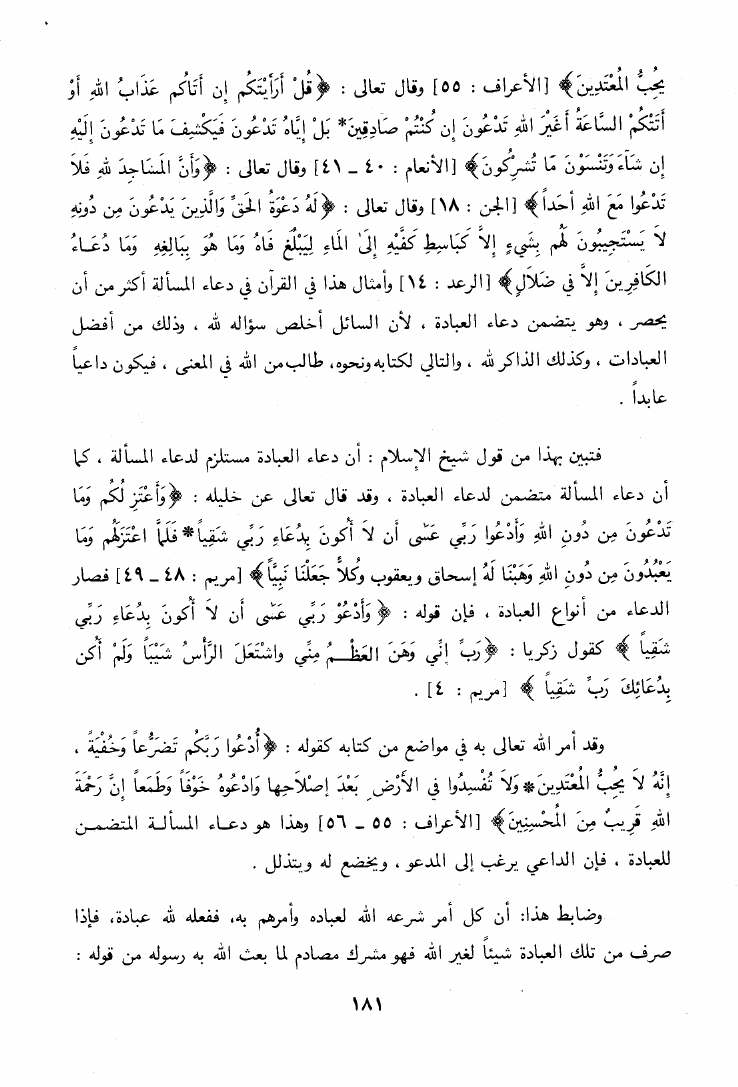 يُحِبُّ المُعْتَدِينَ﴾ [الأعراف : ٥٥] وقال تعالى : ﴿قُلْ أَرَأَيْتَكُم إِن أَتَاكُم عَذَابُ اللهِ أَوْ
أَتَتْكُمْ السَّاعَةُ أَغَيْرَ اللهِ تَدْعُونَ إِن كُنْتُمْ صَادِقِينَ* بَلْ إِيَّاهُ تَدْعُونَ فَيَكْشِفَ مَا تَدْعُونَ إِلَيْهِ
إِن شَآءَ وَتَنْسَوْنَ مَا تُشْرِكُونَ﴾ [الأنعام : ٤٠ ــ ٤١] وقال تعالى : ﴿وَأَنَّ المَسَاجِدَ للهِ فَلاَ
تَدْعُوا مَعَ اللهِ أَحَداً﴾ [الجن : ١٨] وقال تعالى : ﴿لَهُ دَعْوَةُ الحَقِّ وَالَّذِينَ يَدْعُونَ مِن دُونِهِ
لاَ يَسْتَجِيبُونَ لَهُم بِشَيءٍ إِلاَّ كَبَاسِطِ كَفَّيْهِ إِلىٰ المَاءِ لِيَبْلُغَ فَاهُ وَمَا هُوَ بِبَالِغِهِ وَمَا دُعَـاءُ
الكَافِرِينَ إِلاَّ في ضَلاَلٍ﴾ [الرعد : ١٤] وأمثال هذا في القرآن في دعاء المسألة أكثر من أن
يحصر ، وهو يتضمن دعاء العبادة ، لأن السائل أخلص سؤاله لله ، وذلك من أفضل
العبادات ، وكذلك الذاكر لله ، والتالي لكتابه ونحوه، طالب من الله في المعنى ، فيكون داعياً
عابداً .
فتبين بهذا من قول شيخ الإسلام : أن دعاء العبادة مستلزم لدعاء المسألة ، كما
أن دعاء المسألة متضمن لدعاء العبادة ، وقد قال تعالى عن خليله : ﴿وَأَعْتَزِلُكُم وَمَا
تَدْعُونَ مِن دُونِ اللهِ وَأَدْعُوا رَبِّي عَسَى أن لاَ أَكُونَ بِدُعَاءِ رَبِّي شَقِياً* فَلَمَّا اعْتَزَلَهُم وَمَا
يَعْبُدُونَ مِن دُونِ اللهِ وَهَبْنَا لَهُ إِسحاق ويعقوب وَكُلاًّ جَعَلْنَا نَبِيًّا﴾ [مريم : ٤٨ ــ ٤٩] فصار
الدعاء من أنواع العبادة ، فإن قوله : ﴿وَأَدْعُوْ رَبِّي عَسَى أن لاَ أَكُونَ بِدُعَاءِ رَبِّي
شَقِياً ﴾ كقول زكريا : ﴿رَبِّ إِنِّي وَهَنَ العَظْـمُ مِنِّي واشْتَعَلَ الرَّأْسُ شَيْبًا وَلَمْ أَكن
بِدُعَائِكَ رَبِّ شَقِياً ﴾ [مريم : ٤] .
وقد أمر الله تعالى به في مواضع من كتابه كقوله : ﴿أُدْعُوا رَبَّكُم تَضَرُّعاً وَخُفْيَةً ،
إِنَّهُ لاَ يُحِبُّ المُعْتَدِينَ* وَلاَ تُفْسِدُوا في الأَرْضِ بَعْدَ إصْلاَحِها وَادْعُوهُ خَوْفَاً وَطَمَعاً إِنَّ رَحْمَةَ
اللهِ قَرِيبٌ مِنَ المُحْسِنِينَ﴾ [الأعراف : ٥٥ ــ ٥٦] وهذا هو دعـاء المسألـة المتضمـن
للعبادة ، فإن الداعي يرغب إلى المدعو ، ويخضع له ويتذلل .
وضابط هذا: أن كل أمر شرعه الله لعباده وأمرهم به، ففعله لله عبادة، فإذا
صرف من تلك العبادة شيئاً لغير الله فهو مشرك مصادم لما بعث الله به رسوله من قوله :
١٨١